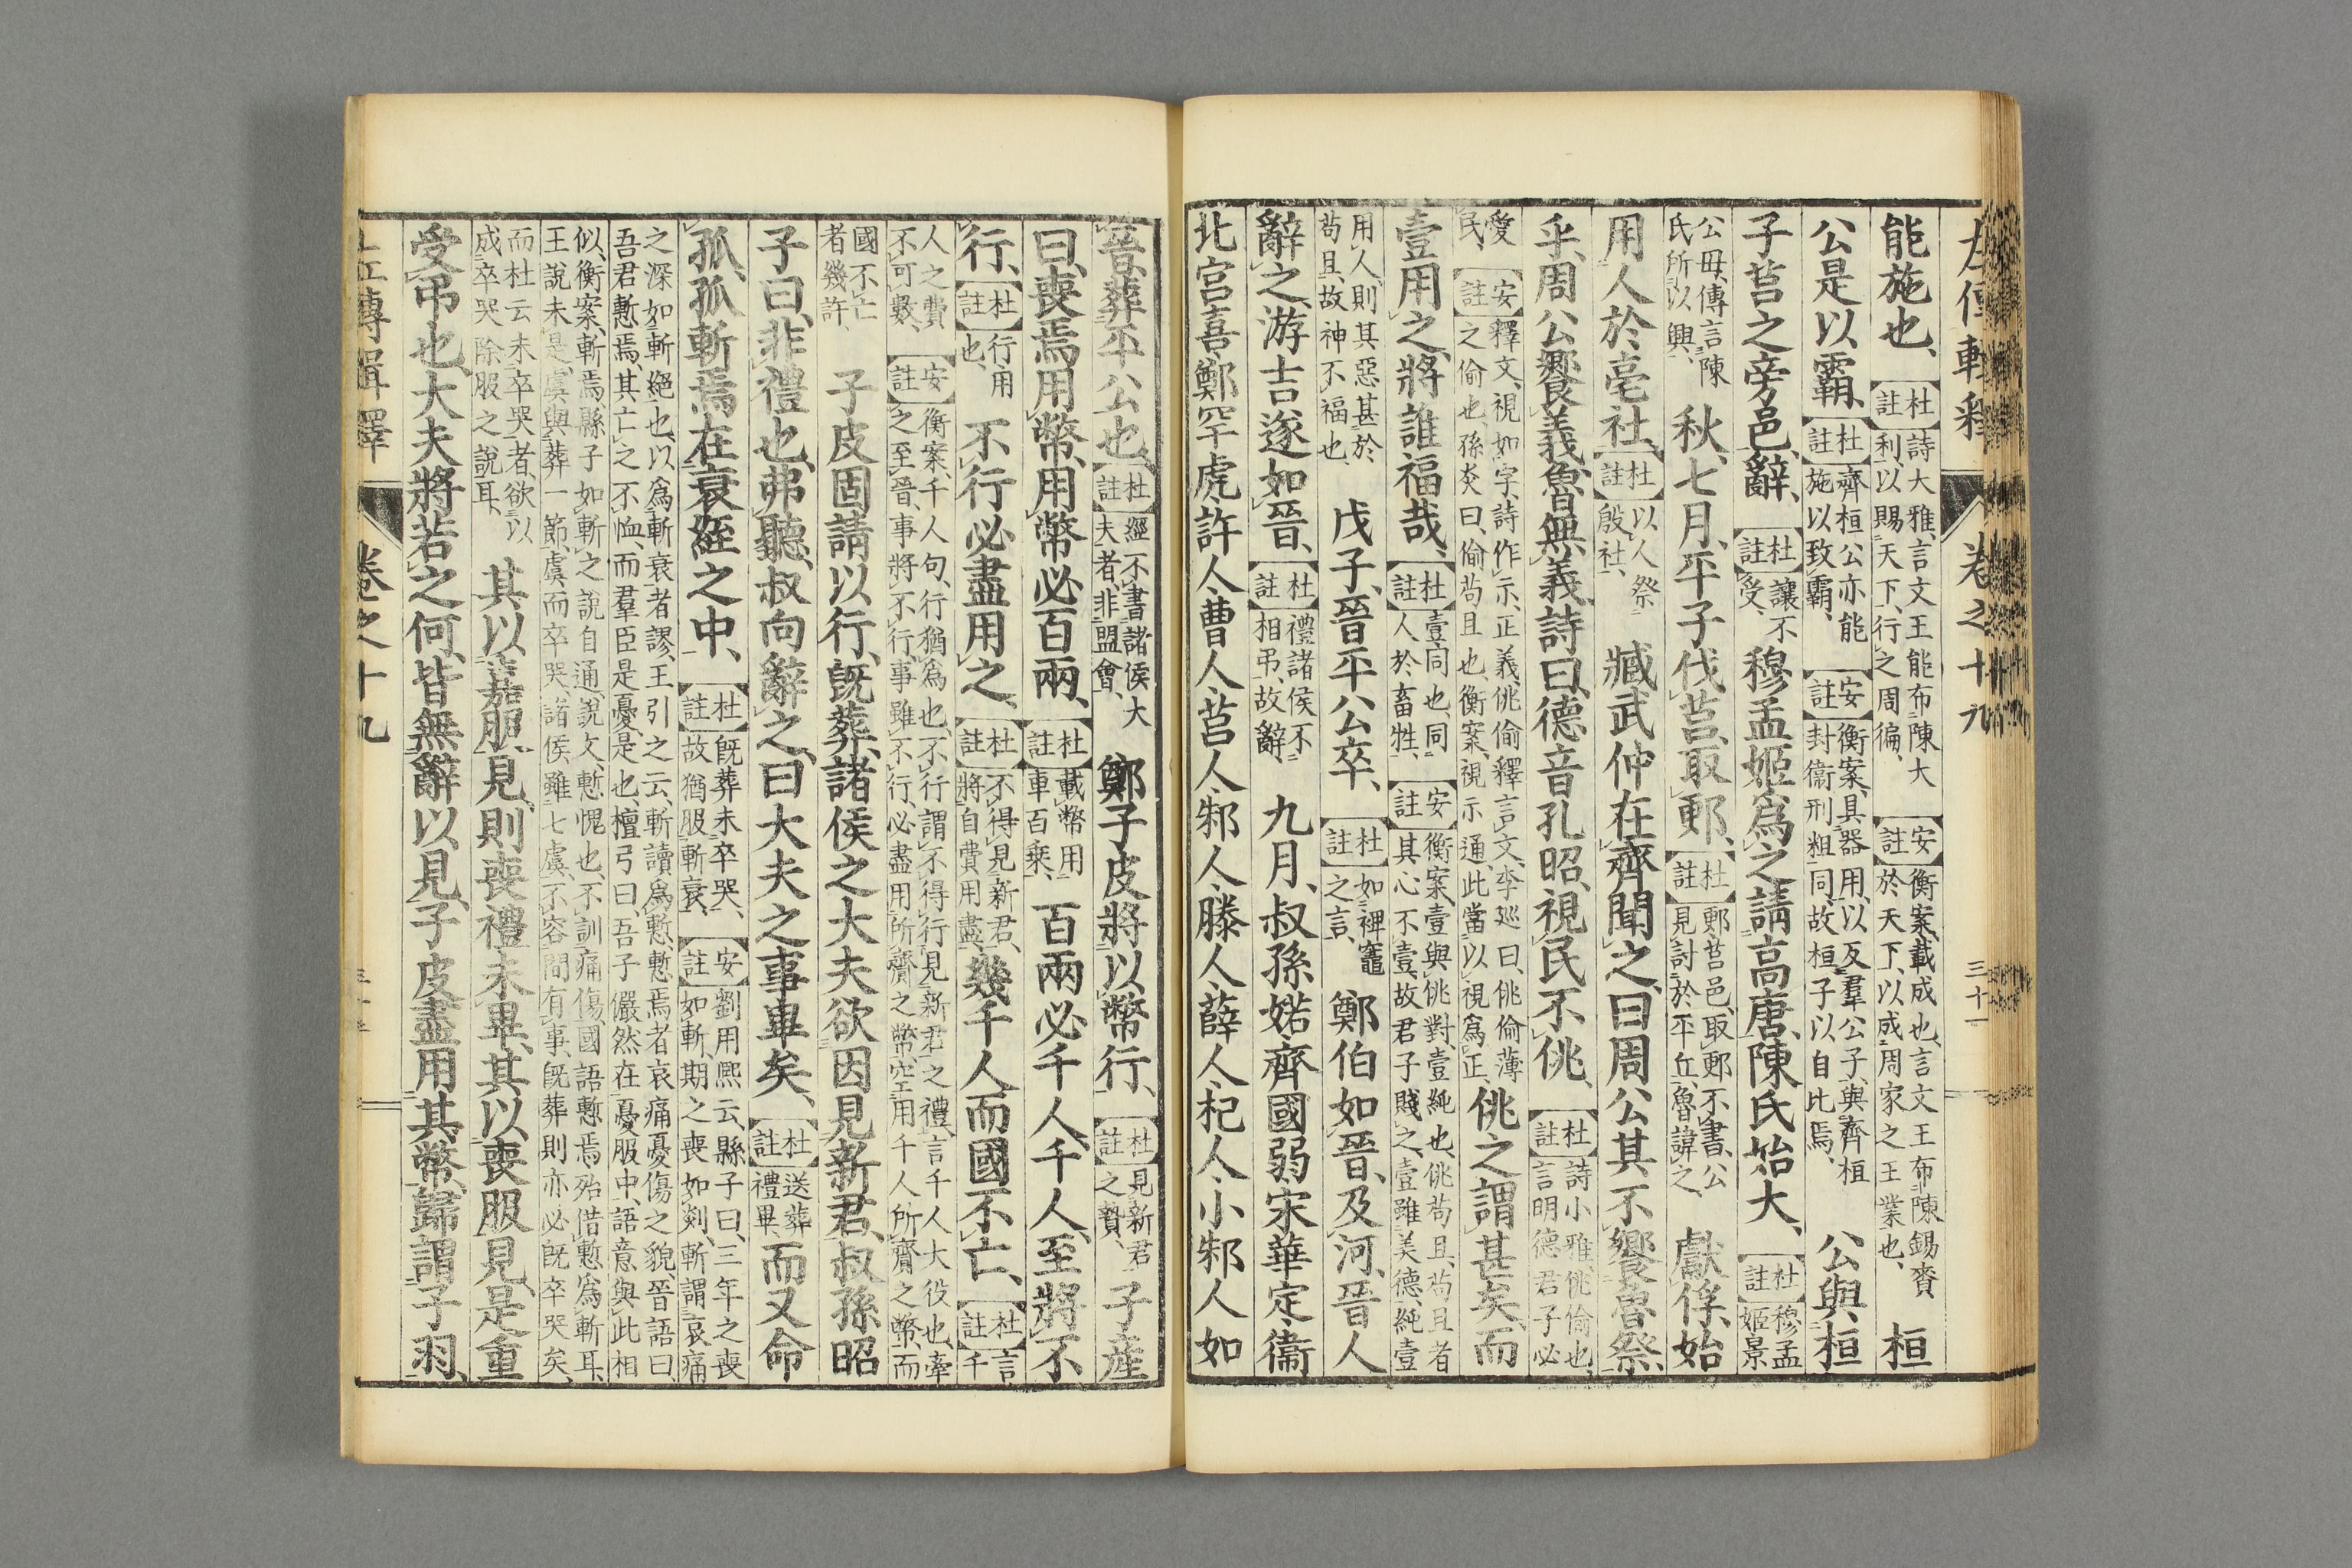 左傳輯釋 卷之十九 三十一
能施也、【杜註】詩大雅、言文王能布陳大利、以賜天下、行之周徧、【安註】衡案、載成也、言文王布陳錫賚於天下、以成周家之王業也、桓
公是以霸、【杜註】齊桓公亦能施以致霸、【安註】衡案、具器用、以反羣公子、與齊桓封衞刑粗同、故桓子以自比焉、公與桓
子莒之旁邑、辭、【杜註】讓不受、穆孟姬爲之請高唐、陳氏始大、【杜註】穆孟姬景
公母、傳言陳氏所以興、秋、七月、平子伐莒、取郠、【杜註】郠莒邑、取郠不書、公見討於平丘、魯諱之、獻俘、始
用人於亳社、【杜註】以人祭殷社、臧武仲在齊聞之、曰周公其不饗魯祭
乎、周公饗義、魯無義、詩曰、德音孔昭、視民不佻、【杜註】詩小雅、佻偷也、言明德君子必
愛民、【安註】釋文、視如字、詩作示、正義、佻偷釋言文、李廵曰、佻偷薄之偷也、孫炎曰、偷苟且也、衡案、視示通、此當以視爲正、佻之謂甚矣、而
壹用之、將誰福哉、【杜註】壹同也、同人於畜牲、【安註】衡案、壹與佻對、壹純也、佻苟且、苟且者其心不壹、故君子賤之、壹雖美德、純壹
用人、則其惡甚於苟且、故神不福也、戊子、晉平公卒、【杜註】如裨竈之言、鄭伯如晉、及河、晉人
辭之、游吉遂如晉、【杜註】禮諸侯不相弔、故辭、九月、叔孫婼齊國弱宋華定衞
北宮喜鄭罕虎許人曹人莒人邾人滕人薛人杞人小邾人如
晉、葬平公也、【杜註】經不書諸侯大夫者、非盟會、鄭子皮將以幣行、【杜註】見新君之贄、子產
曰、喪焉用幣、用幣必百兩、【杜註】載幣用車百乘、百兩必千人、千人至、將不
行、【杜註】行用也、不行必盡用之、【杜註】不得見新君、將自費用盡、幾千人而國不亡、【杜註】言千
人之費不可數、【安註】衡案、千人句、行猶爲也、不行謂不得行見新君之禮、言千人大役也、牽之至晉、事將不行、事雖不行、必盡用所齎之幣、空用千人所齎之幣、而
國不亡者幾許、子皮固請以行、既葬、諸侯之大夫欲因見新君、叔孫昭
子曰、非禮也、弗聽、叔向辭之、曰大夫之事畢矣、【杜註】送葬禮畢、而又命
孤、孤斬焉在衰絰之中、【杜註】既葬未卒哭、故猶服斬衰、【安註】劉用熙云、縣子曰、三年之喪如斬、期之喪如剡、斬謂哀痛
之深如斬絕也、以爲斬衰者謬、王引之云、斬讀爲慙、慙焉者哀痛憂傷之貌、晉語曰吾君慙焉、其亡之不恤、而羣臣是憂是也、檀弓曰、吾子儼然在憂服中、語意與此相
似、衡案、斬焉、縣子如斬之說自通、說文慙愧也、不訓痛傷、國語慙焉殆借慙爲斬耳、王說未是、虞與葬一節、虞而卒哭、諸侯雖七虞、不容間有事、既葬則亦必既卒哭矣、
而杜云未卒哭者、欲以成卒哭除服之說耳、其以嘉服見、則喪禮未畢、其以喪服見、是重
受弔也、大夫將若之何、皆無辭以見、子皮盡用其幣、歸謂子羽、
左傳輯釋 卷之十九